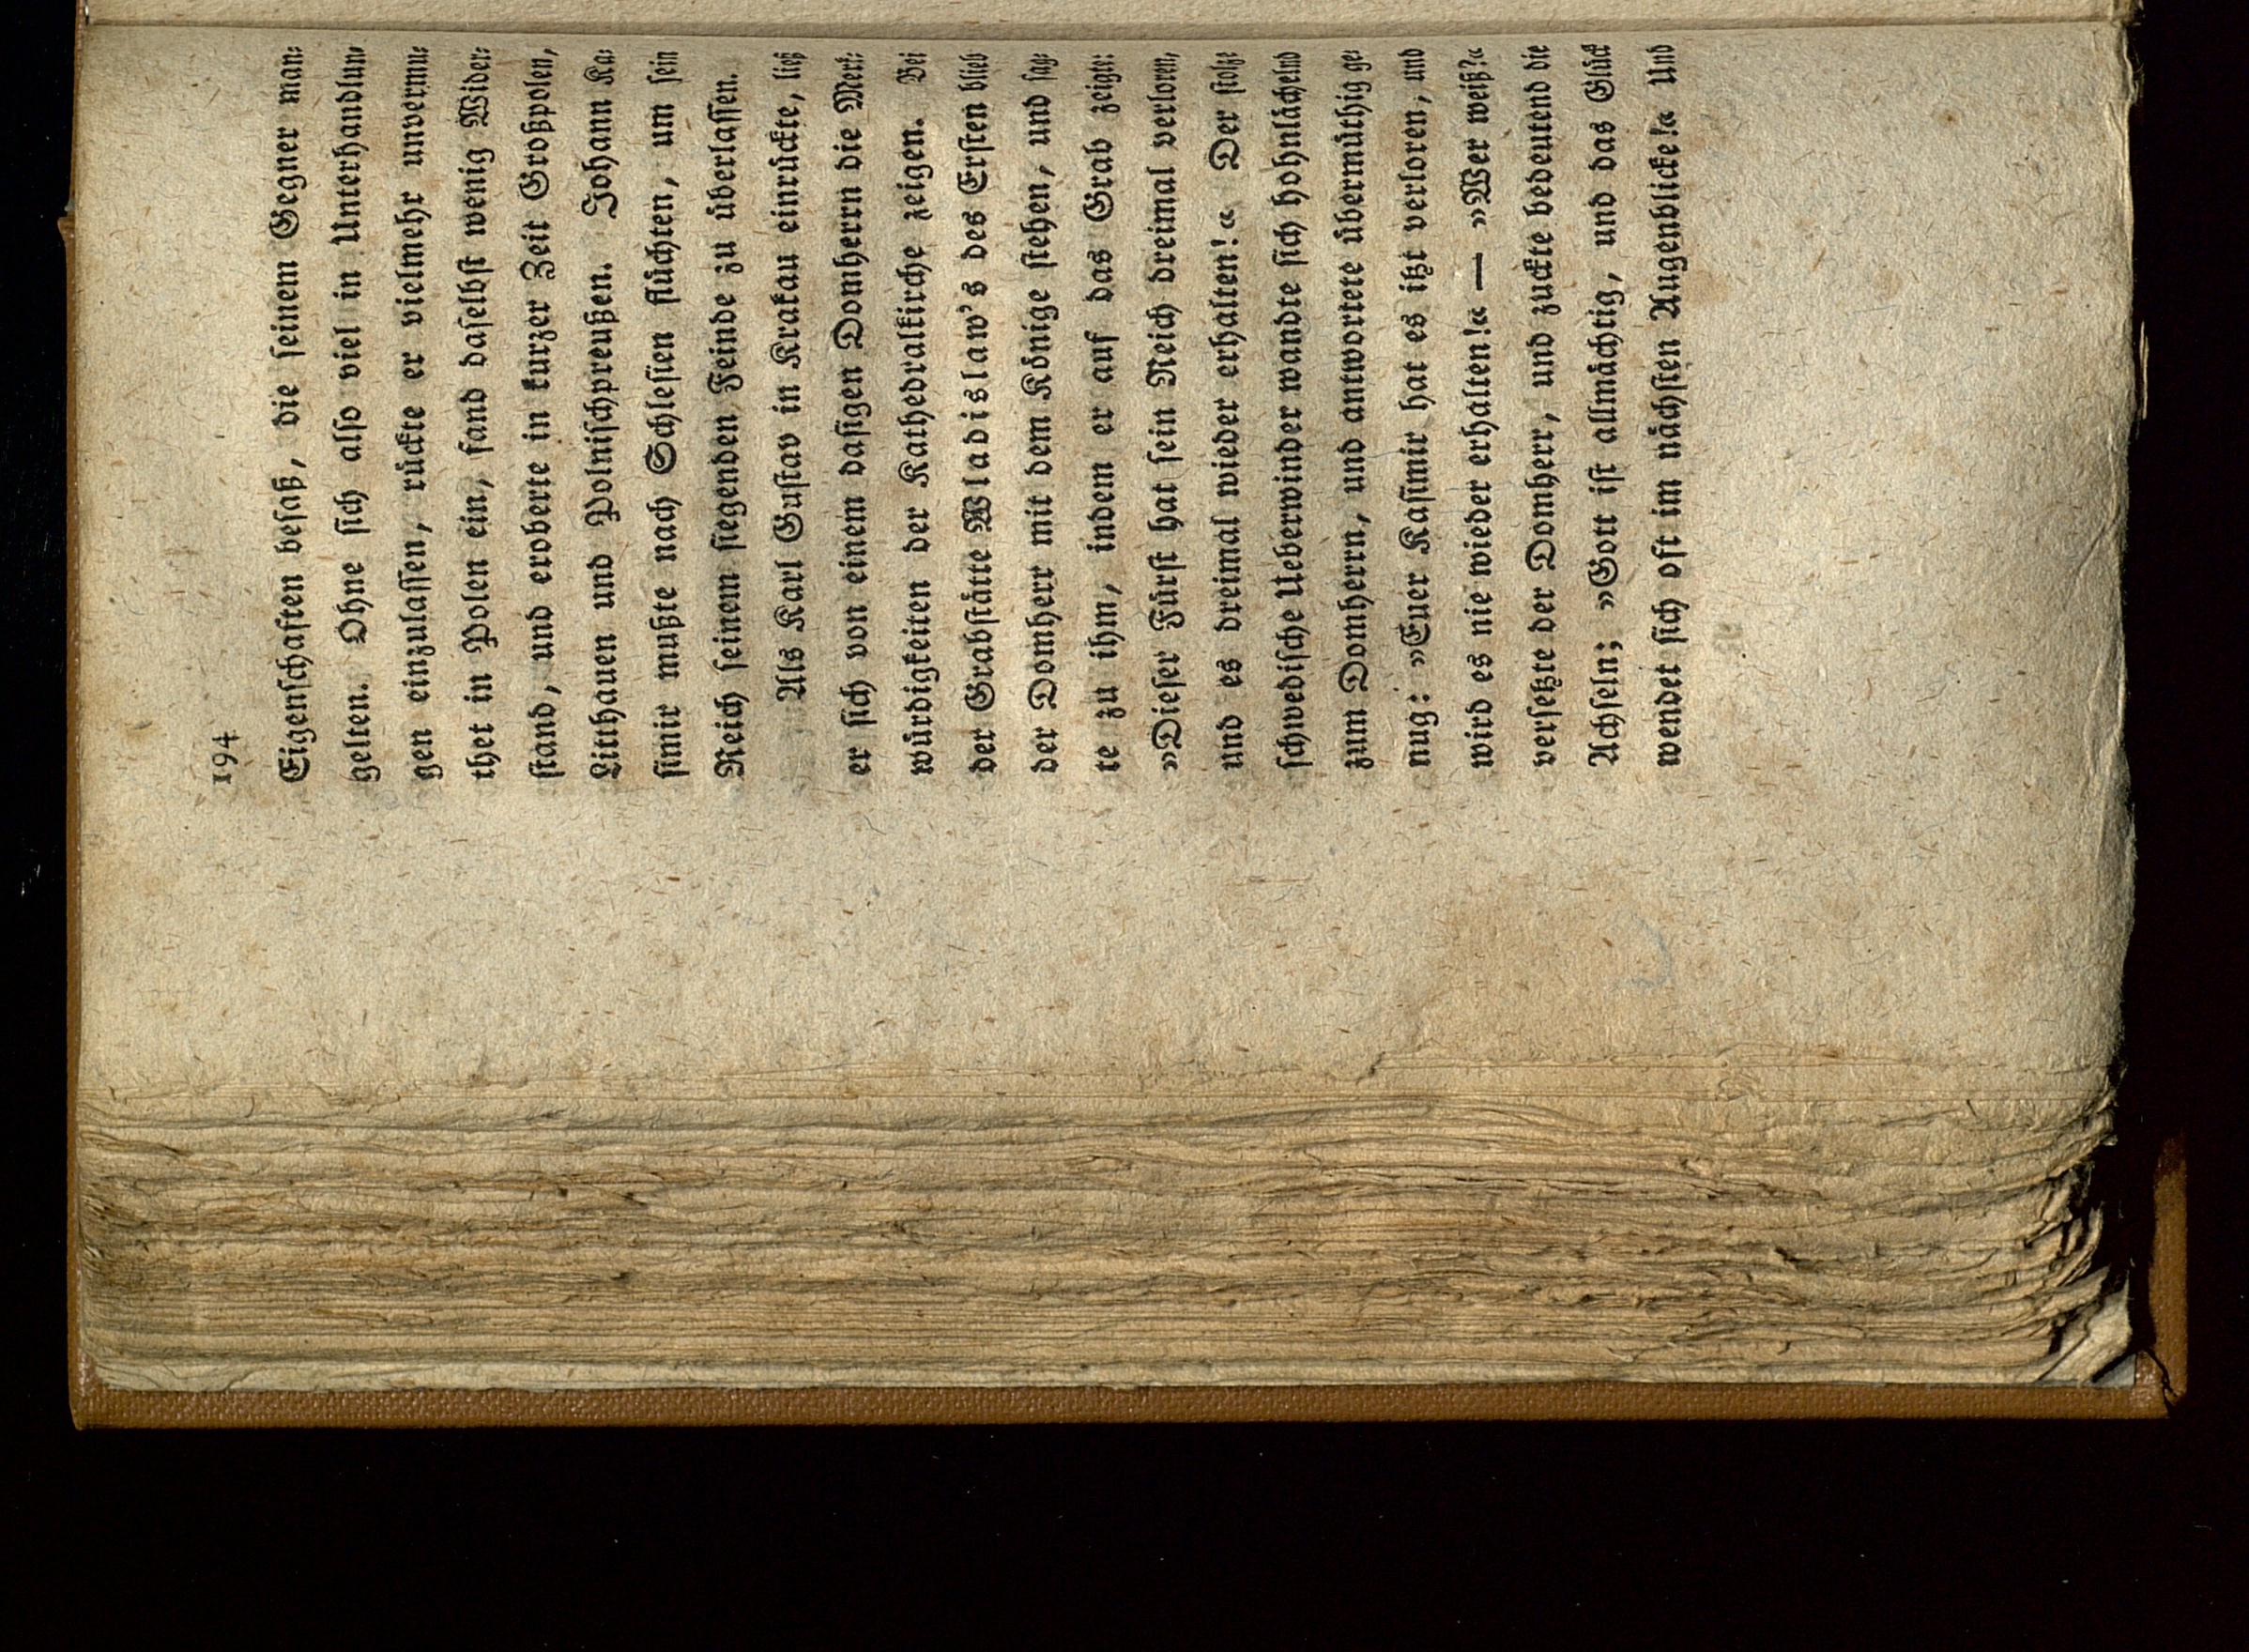 194
Eigenſchaften beſaß, die ſeinem Gegner man⸗
gelten. Ohne ſich alſo viel in Unterhandlun⸗
gen einzulaſſen, ruͤckte er vielmehr unvermu⸗
thet in Polen ein, fand daſelbſt wenig Wider⸗
ſtand, und eroberte in kurzer Zeit Großpolen,
Litthauen und Polniſchpreußen. Johann Ka⸗
ſimir mußte nach Schleſien fluͤchten, um ſein
Reich ſeinem ſiegenden Feinde zu uͤberlaſſen.
Als Karl Guſtav in Krakau einruͤckte, ließ
er ſich von einem daſigen Domherrn die Merk⸗
wuͤrdigkeiten der Kathedralkirche zeigen. Bei
der Grabſtaͤtte Wladislaw's des Erſten blieb
der Domherr mit dem Koͤnige ſtehen, und ſag⸗
te zu ihm, indem er auf das Grab zeigte:
»Dieſer Fuͤrſt hat ſein Reich dreimal verloren,
und es dreimal wieder erhalten!« Der ſtolze
ſchwediſche Ueberwinder wandte ſich hohnlaͤchelnd
zum Domherrn, und antwortete uͤbermuͤthig ge⸗
nug: »Euer Kaſimir hat es itzt verloren, und
wird es nie wieder erhalten!« — »Wer weiß?«
verſetzte der Domherr, und zuckte bedeutend die
Achſeln; »Gott iſt allmaͤchtig, und das Gluͤck
wendet ſich oft im naͤchſten Augenblicke!« Und